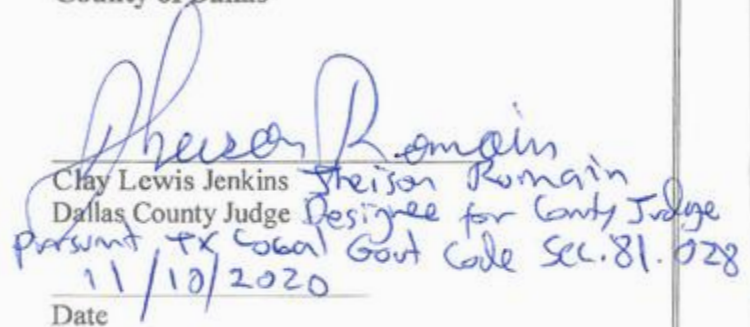 County of Dallas
Theison Romain
Clay Lewis Jenkins Theison Romain
Dallas County Judge Designee for County Judge
pursuant TX Local Govt Code Sec. 81.028
11/10/2020
Date